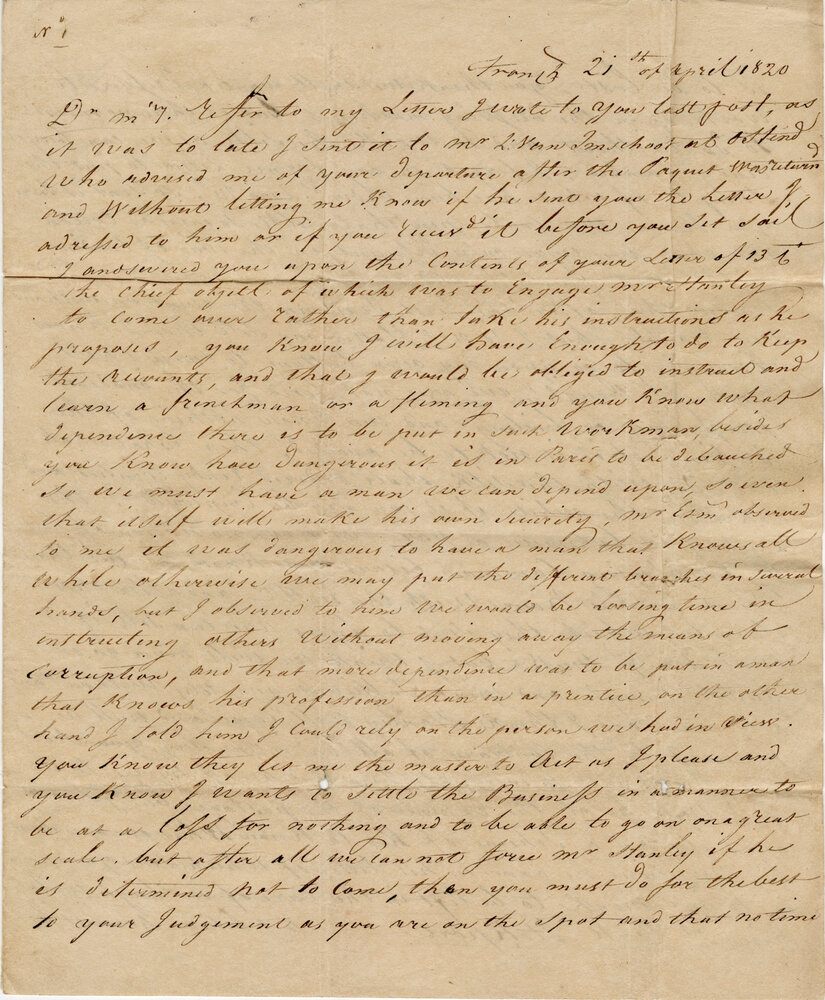 No 1
21th of April 1820
Dr Refer to my Letter I wrote to you last post, as
it was to late I sent it to Mr L. Van Imschoot at Ostend
Who advised me of your departure after the Paquet Was return'd
and Without letting me Know if he sent you the Letter I
adressed to him or if you Receiv'd it before you set sail
I andswered you upon the Contents of your Letter of 13 th
the chief object of which was to Engage Mr Stanley
to come over rather than take his instructions as he
proposes, you Know I will have Enough to do to Keep
the accounts, and that I would be obliged to instruct and
learn a frenchman or a fleming and you Know what
dependence there is to be put in such Workman, besides
you Know how dangerous it is in Paris to be debauched
so we must have a man we can depend upon, so even
that itself will make his own security, Mr observed
to me it was dangerous to have a man that Knows all
While otherwise we may put the different branches in several
hands, but I observed to him We would be Loosing time in
instructing others Without moving away the means of
Corruption, and that more dependence was to be put in a man
that Knows his profession than in a prentice, on the other
hand I told him I Could rely on the person we had in View.
You Know they let me the master to Act as I please and
you Know I Wants to settle the Business in a manner to
be at a loss for nothing and to be able to go on on a great
scale. but after all we can not force Mr Stanley if he
is determined not to Come, then you must do for the best
to your Judgement as you are on the Spot and that no time